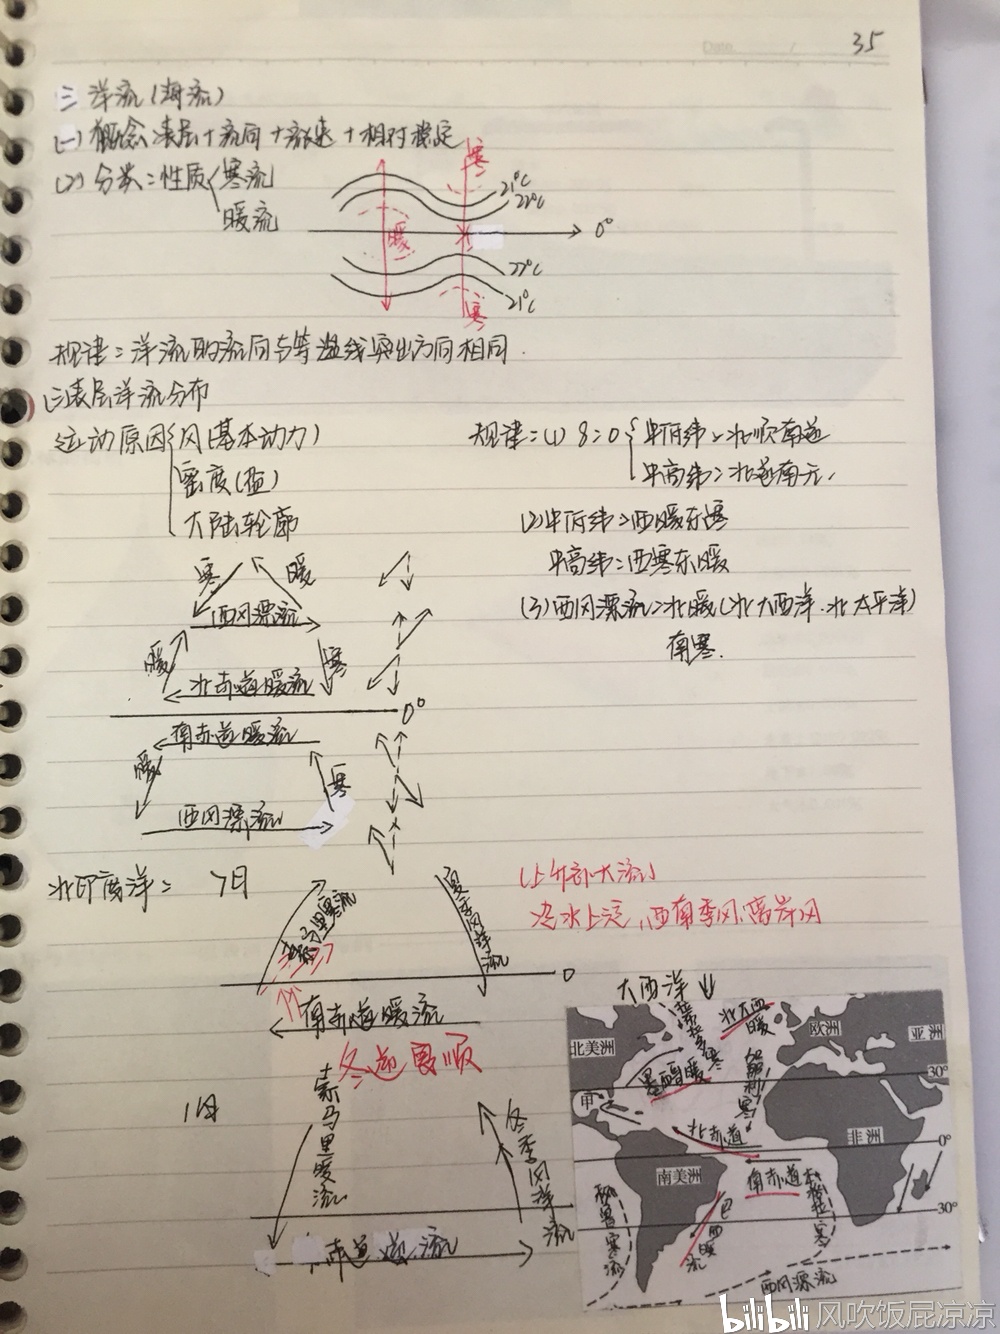 Date
35
三 洋流(海流)
(一) 概念:表层+流向+流速+相对稳定
(2) 分类:性质
寒流
暖流
寒
21℃
22℃
暖
0°
22℃
21℃
寒
规律:洋流的流向与等温线突出方向相同.
(三)表层洋流分布
运动原因
风(基本动力)
密度(盐)
大陆轮廓
规律:(1) 8:0
中低纬:北顺南逆
中高纬:北逆南无.
(2)中低纬:西暖东寒
中高纬:西寒东暖
(3)西风漂流:北暖(北大西洋.北太平洋)
南寒.
寒
暖
西风漂流
暖
寒
北赤道暖流
0°
南赤道暖流
暖
寒
西风漂流
北印度洋:
7月
索马里寒流
夏季风洋流
0
南赤道暖流
冬逆夏顺
(上升补大流)
冷水上泛,西南季风,离岸风
1月
索马里暖流
冬季风洋流
赤道逆流
大西洋
北大西暖
拉布拉多寒
北美洲
欧洲
亚洲
墨西哥暖
加那利寒
30°
甲
北赤道
非洲
0°
南美洲
南赤道
本格拉寒
秘鲁寒流
巴西暖流
30°
西风漂流
bilibili 风吹饭屁凉凉